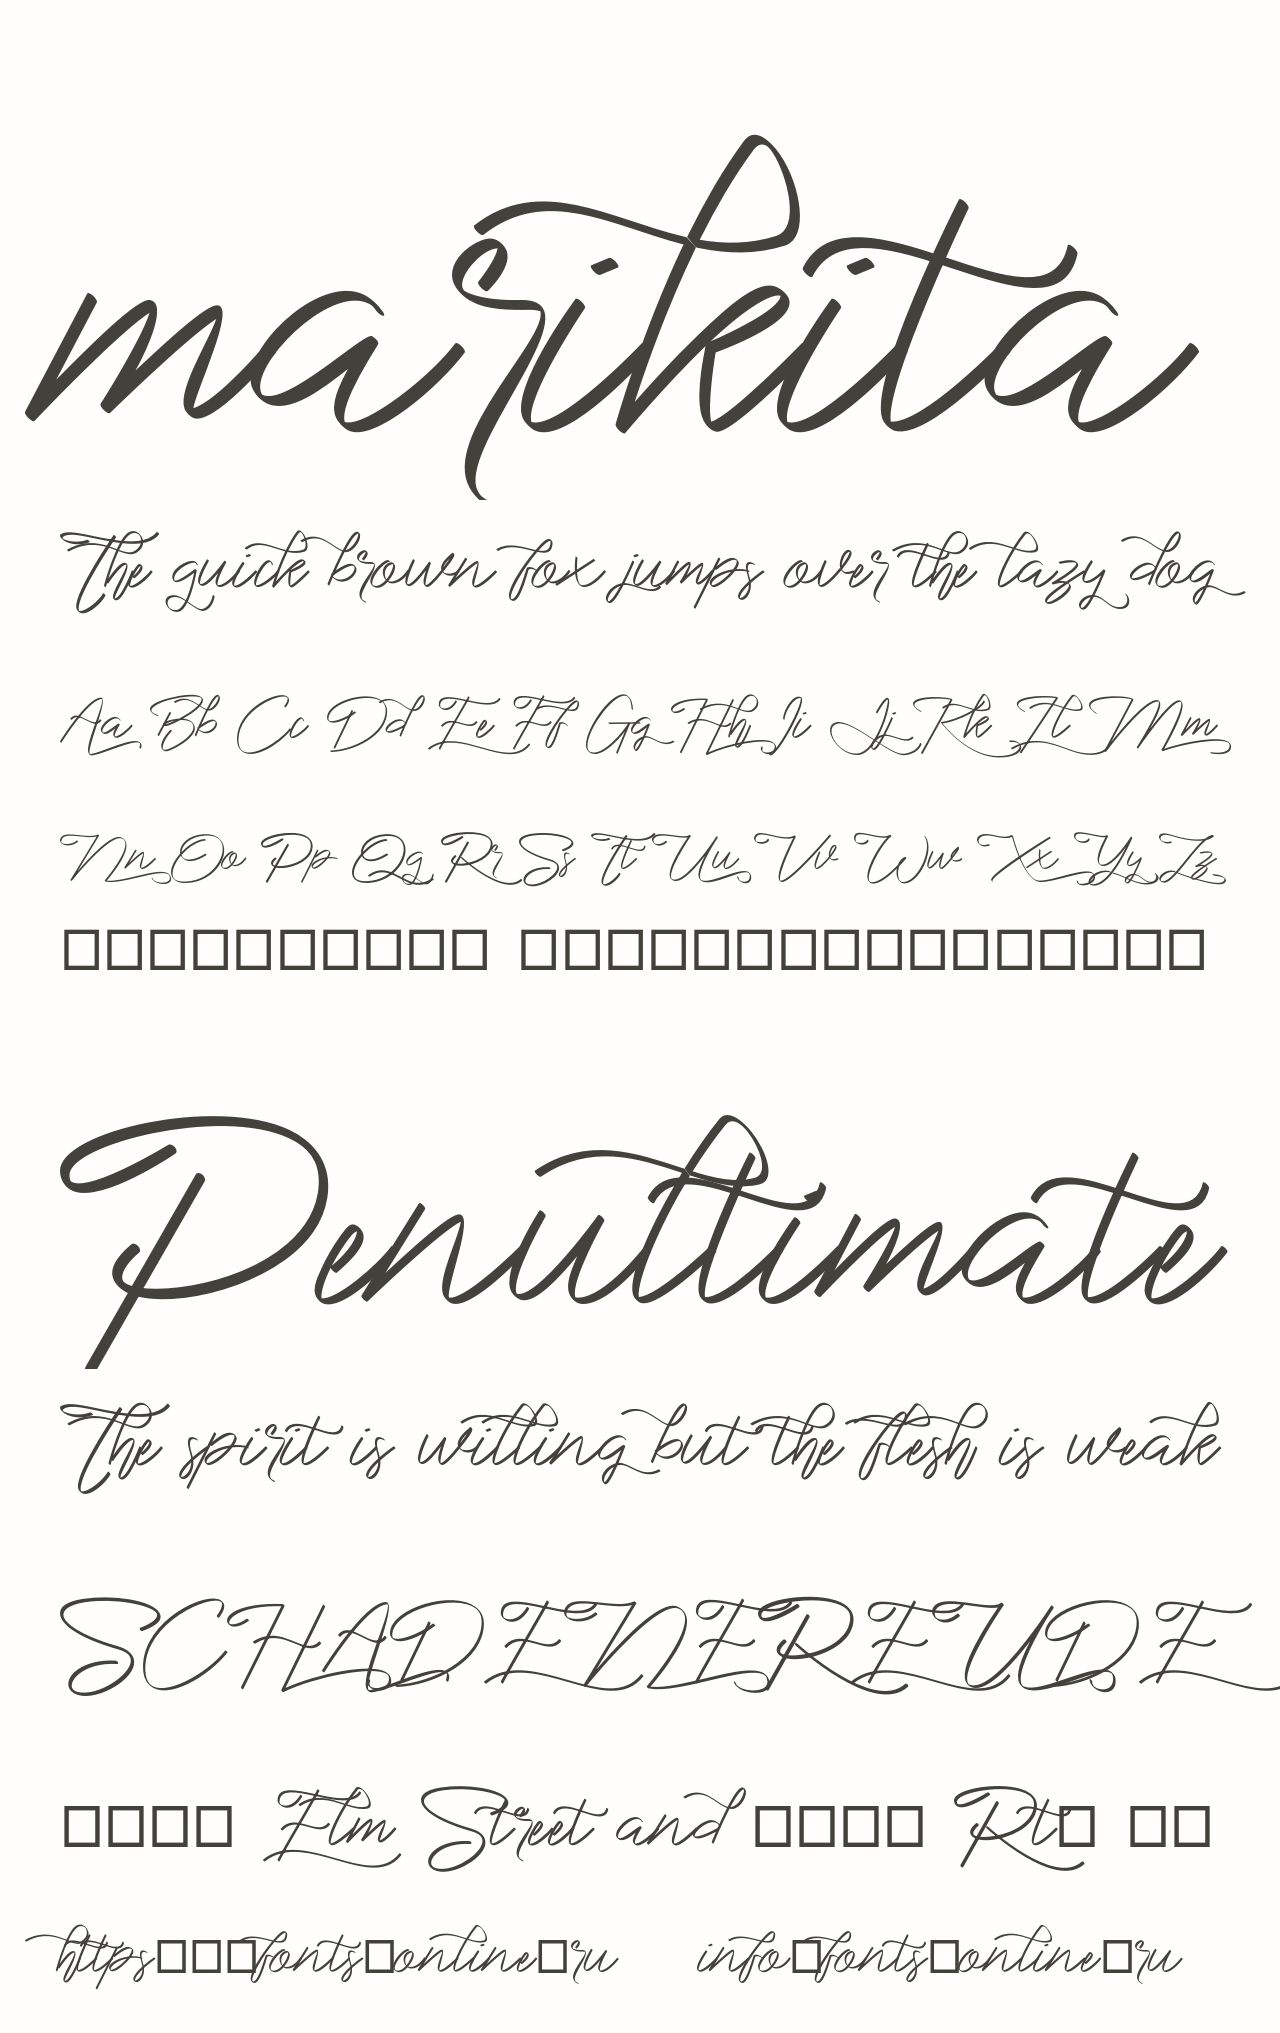 marikita
The quick brown fox jumps over the lazy dog
Aa Bb Cc Dd Ee Ff Gg Hh Ii Jj Kk Ll Mm
Nn Oo Pp Qq Rr Ss Tt Uu Vv Ww Xx Yy Zz
□□□□□□□□□□ □□□□□□□□□□□□□□□□
Penultimate
The spirit is willing but the flesh is weak
SCHADENFREUDE
□□□□ Elm Street and □□□□ Rt□ □□
https□□□fonts□online□ru info□fonts□online□ru